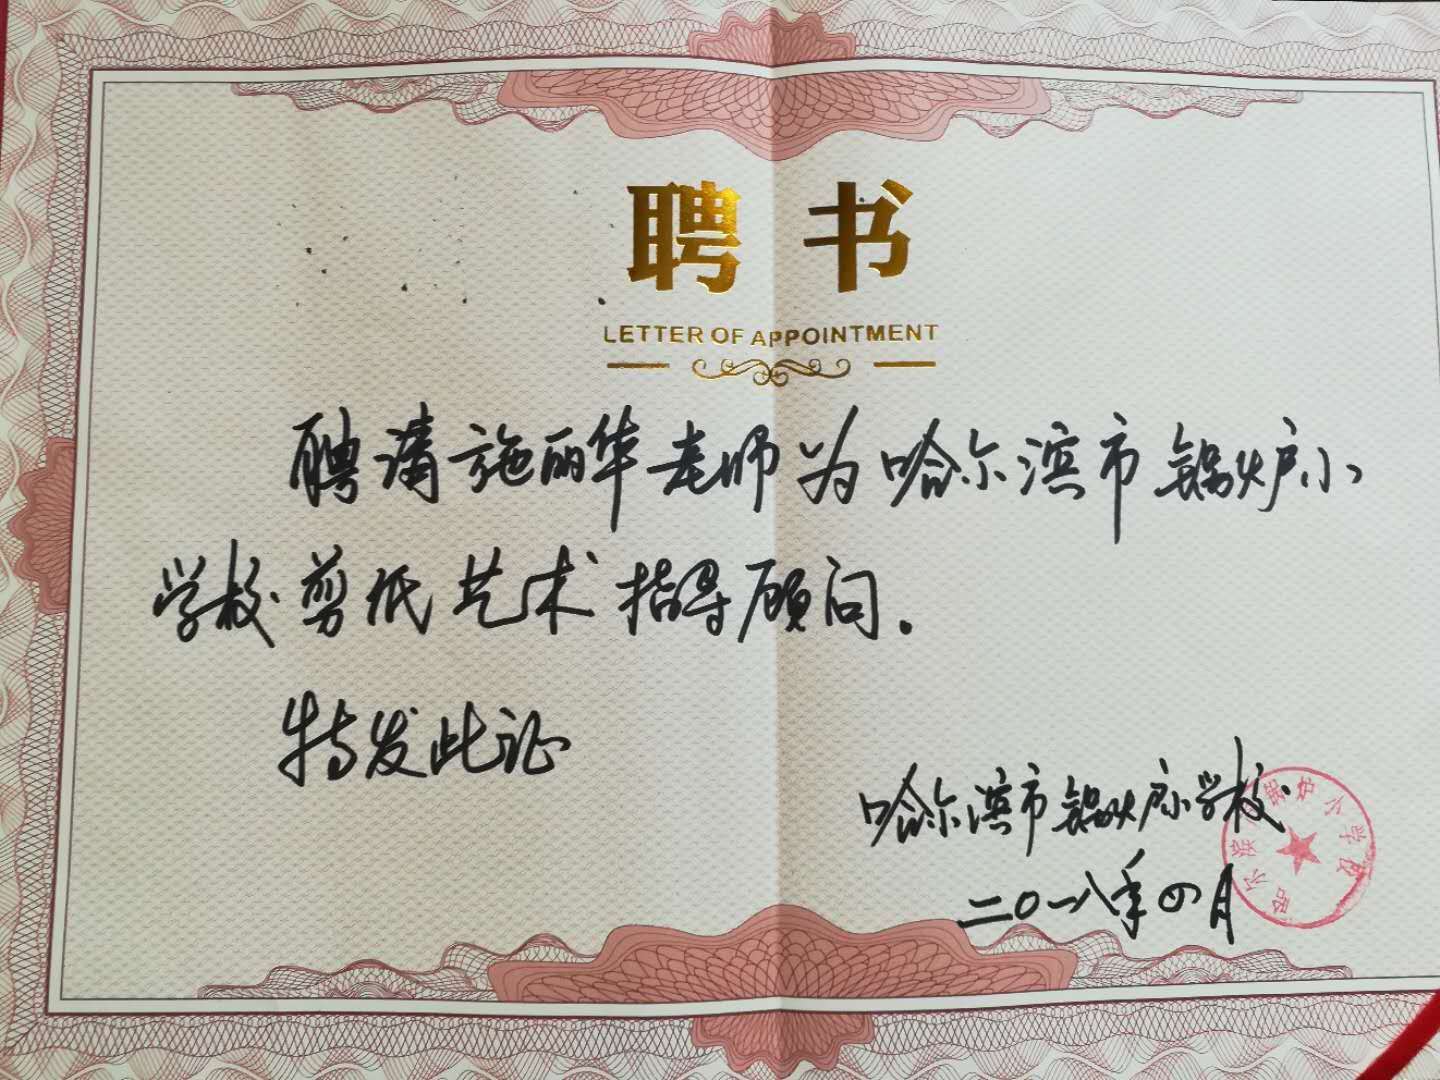 聘书
LETTER OF APPOINTMENT
聘请施丽华老师为哈尔滨市锅炉小
学校剪纸艺术指导顾问。
特发此证
哈尔滨市锅炉小学校
二〇一八年四月
哈尔滨市锅炉小学校